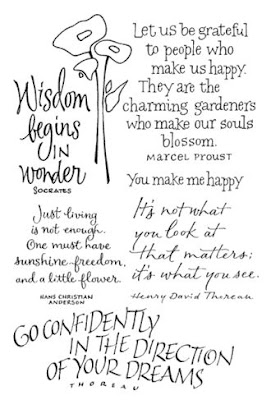 Wisdom
begins
IN
wonder
SOCRATES
Let us be grateful
to people who
make us happy.
They are the
charming gardeners
who make our souls
blossom.
MARCEL PROUST
You make me happy
Just living
is not enough.
One must have
sunshine, freedom,
and a little flower.
HANS CHRISTIAN
ANDERSON
It's not what
you look at
that matters;
it's what you see.
Henry David Thoreau
GO CONFIDENTLY
IN THE DIRECTION
OF YOUR DREAMS
THOREAU